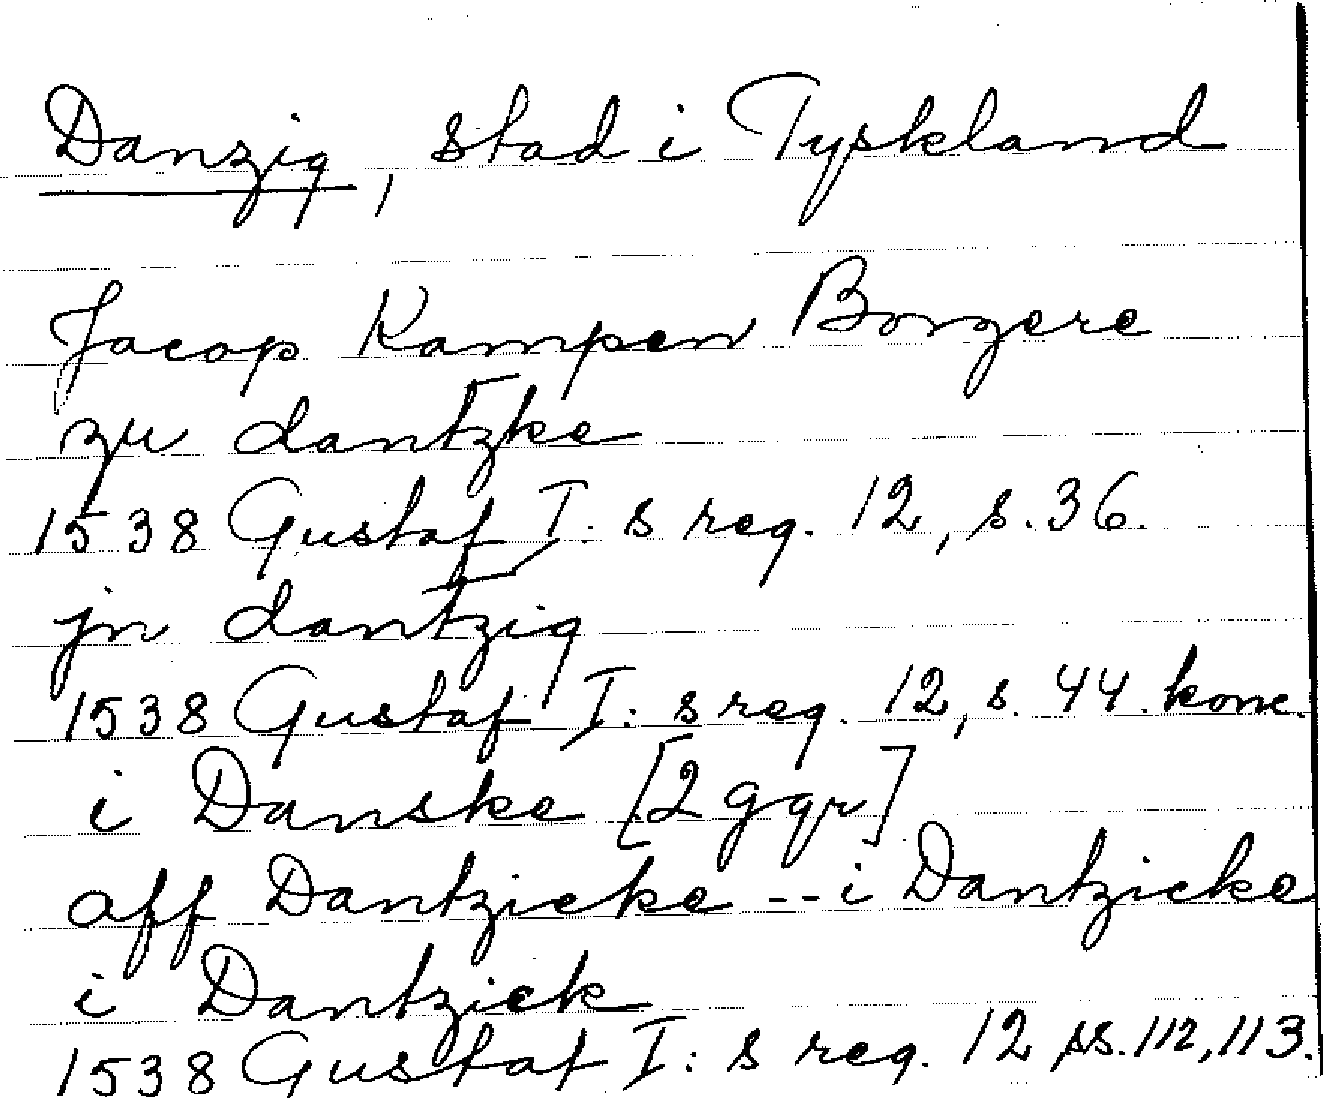 Danzig, stad i Tyskland
Jacop Kampen Borgere
zu dantzke
1538 Gustaf I. s reg. 12, s. 36.
jn dantzig
1538 Gustaf I: s reg. 12, s. 44. konc.
i Danske [2 ggr]
aff Dantzicke -- i Dantzicke
i Dantzick
1538 Gustaf I: s reg. 12 ss. 112, 113.